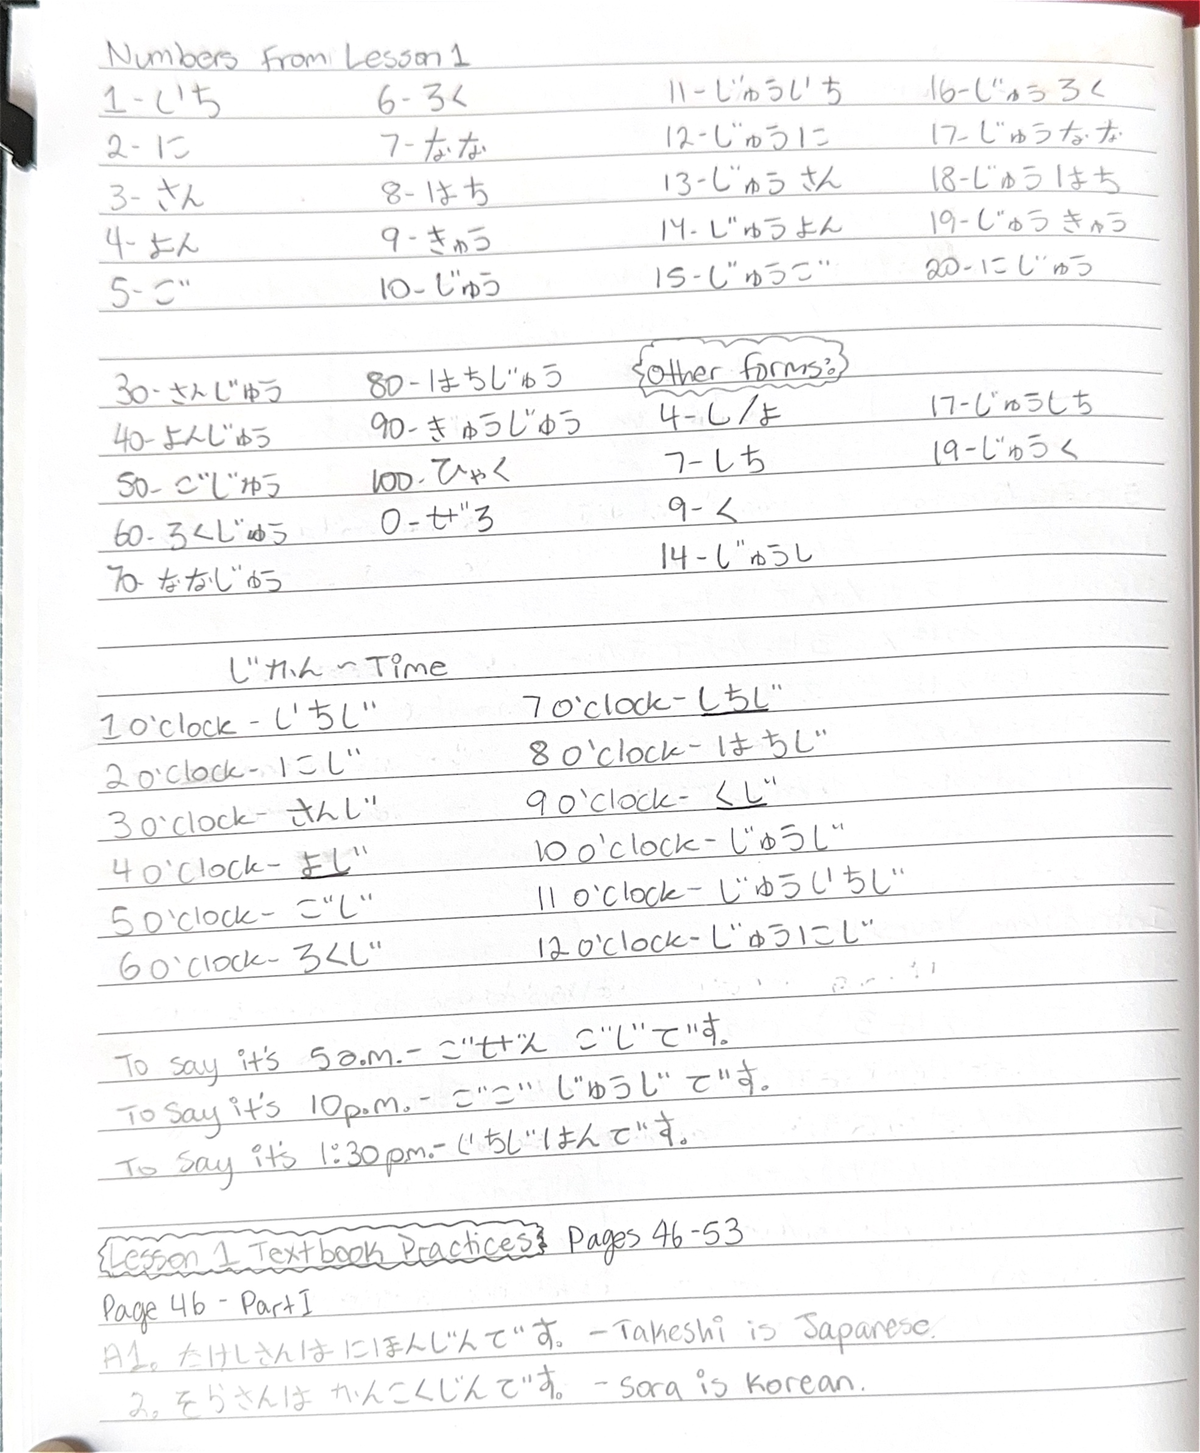 Numbers from Lesson 1
1-いち 6-ろく 11-じゅういち 16-じゅうろく
2-に 7-なな 12-じゅうに 17-じゅうなな
3-さん 8-はち 13-じゅうさん 18-じゅうはち
4-よん 9-きゅう 14-じゅうよん 19-じゅうきゅう
5-ご 10-じゅう 15-じゅうご 20-にじゅう
30-さんじゅう 80-はちじゅう Other forms:
40-よんじゅう 90-きゅうじゅう 4-し/よ 17-じゅうしち
50-ごじゅう 100-ひゃく 7-しち 19-じゅうく
60-ろくじゅう 0-ぜろ 9-く
70-ななじゅう 14-じゅうし
じかん~Time
1 o'clock-いちじ 7 o'clock-しちじ
2 o'clock-にじ 8 o'clock-はちじ
3 o'clock-さんじ 9 o'clock-くじ
4 o'clock-よじ 10 o'clock-じゅうじ
5 o'clock-ごじ 11 o'clock-じゅういちじ
6 o'clock-ろくじ 12 o'clock-じゅうにじ
To say it's 5 a.m.-ごぜん ごじです。
To say it's 10 p.m.-ごご じゅうじです。
To say it's 1:30 pm.-いちじはんです。
Lesson 1 Textbook Practices Pages 46-53
Page 46 - Part I
A1. たけしさんはにほんじんです。-Takeshi is Japanese.
2. そらさんは かんこくじんです。-Sora is Korean.